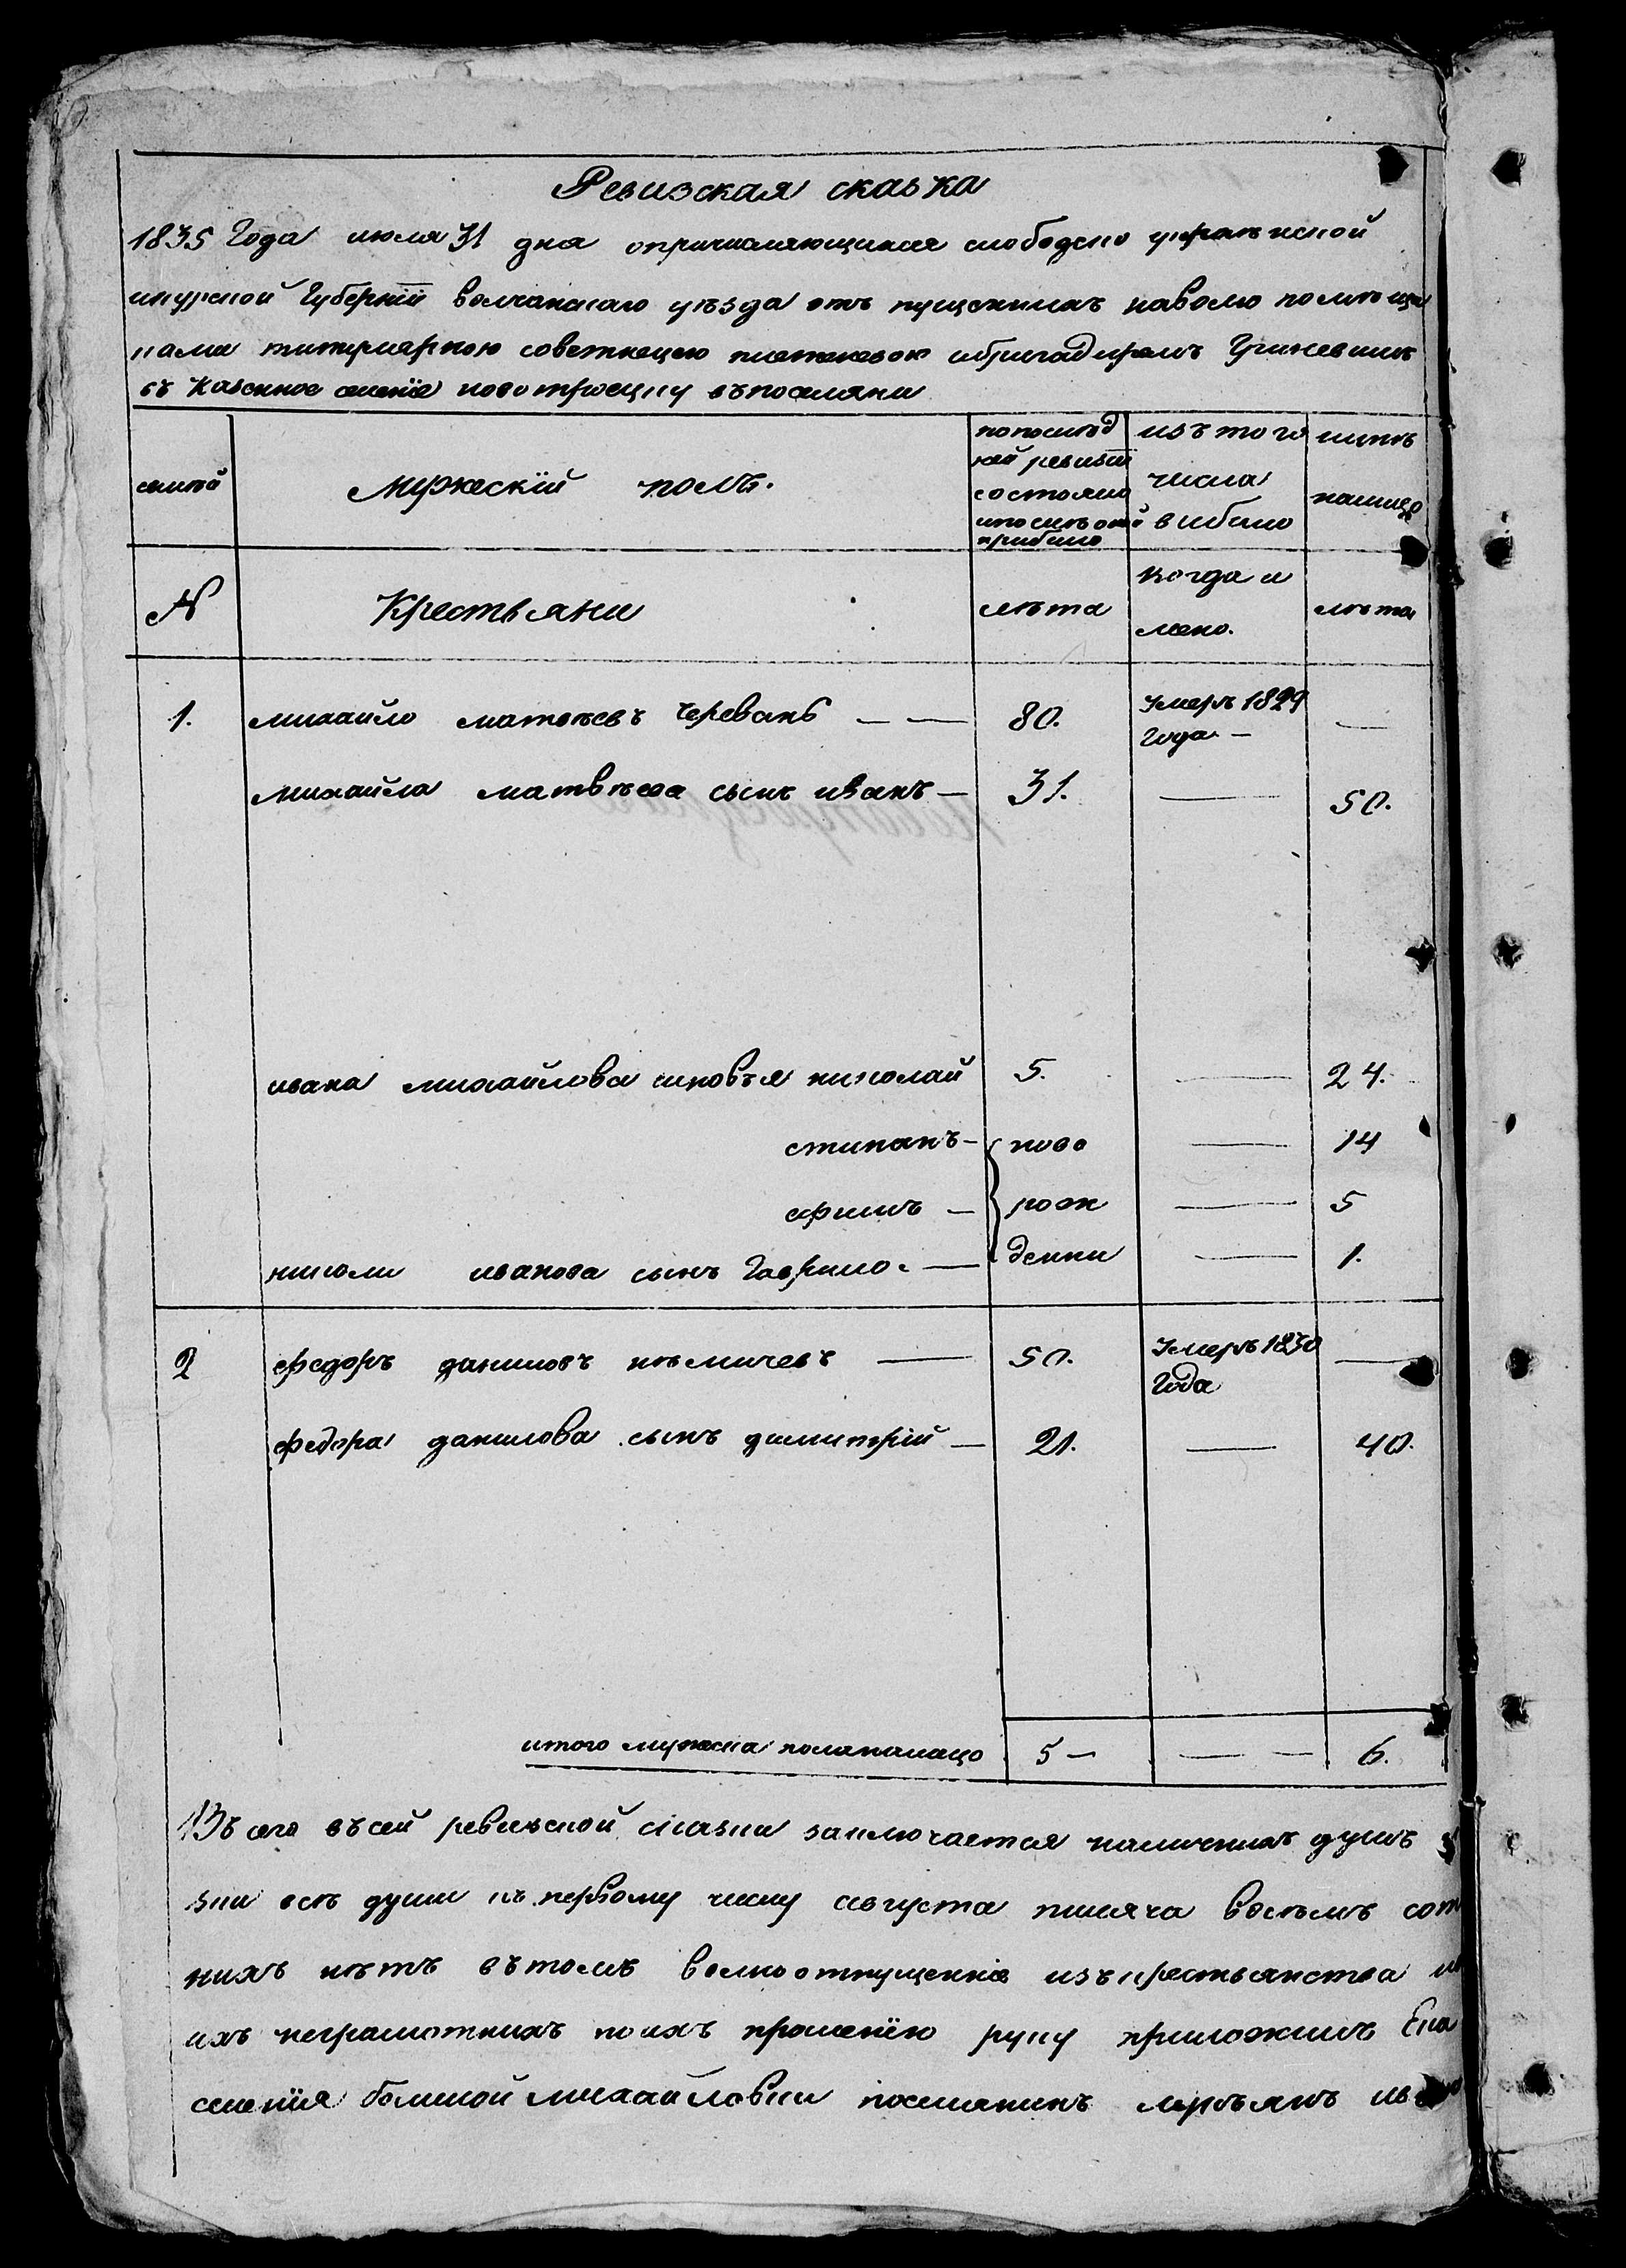 Ревизская сказка
1835 Года июля 31 дня опричисляющихся слободско украинской
Губернїи волчанскаго уезда отъ пущенныхъ наволю помѣщи
ками титулярною советницею бригадиромъ
въ казенное селенїе новотроецку въпоселяни
семей
Мужескїй полъ.
попослѣд
ней ревизїи
состояло
ипослѣ оной
прибыло
изъ того
числа
выбыло
нинѣ
налицо
№
Крестьяни
лѣта
когда и
лѣта
1. михайло матвѣевъ Черевань — — 80. Умеръ 1829
Года — —
михайла матвѣева сынъ иванъ — 31. — 50.
ивана михайлова синовья николай 5. — 24.
стипанъ — ново — 14
ефимъ — рож — 5
николи иванова сынъ Гаврило — денни — 1.
2 федоръ даниловъ немичевъ — 50. Умеръ 1830
Года —
федора данилова сынъ димитрїй — 21. — 40.
итого мужеска поланалицо 5 — — — 6.
Въсего въсей ревизской сказки заключается наличнихъ душъ
души къ первому числу августа тисяча восемъ сот
нихъ нѣтъ вътомъ волноотпущеннїе изъкрестьянства
ихъ неграмотнихъ поихъ прошенїю руку приложилъ
селенїя болшой михайловки поселянинъ